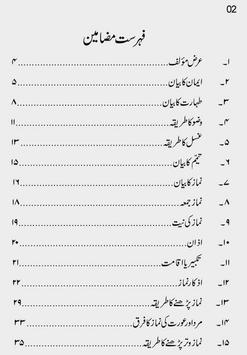 02
فہرست مضامین
۱۔ عرض مؤلف ۴
۲۔ ایمان کا بیان ۵
۳۔ طہارت کا بیان ۸
۴۔ وضو کا طریقہ ۱۱
۵۔ غسل کا طریقہ ۱۳
۶۔ تیمّم کا بیان ۱۵
۷۔ نماز کا بیان ۱۶
۸۔ نماز جمعہ ۱۸
۹۔ نماز کی نیت ۱۹
۱۰۔ اذان ۲۰
۱۱۔ تکبیر یا اقامت ۲۱
۱۲۔ اذکار نماز ۲۲
۱۳۔ نماز پڑھنے کا طریقہ ۲۹
۱۴۔ مرد اور عورت کی نماز کا فرق ۳۳
۱۵۔ نماز وتر پڑھنے کا طریقہ ۳۵